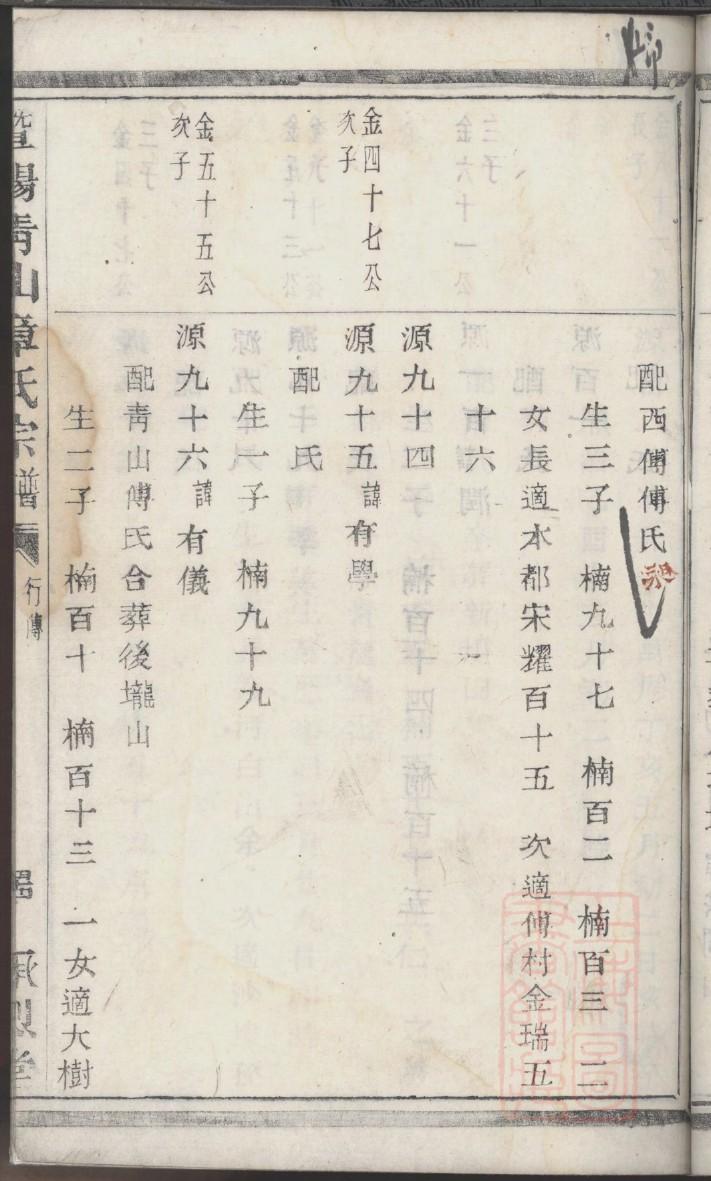 配西傅傅氏
生三子　楠九十七　楠百二　楠百三　二
女長適本都宋耀百十五　次適傅村金瑞五
十六
源九十四
金四十七公
次子
源九十五諱有學
配氏
生一子　楠九十九
金五十五公
次子
源九十六諱有儀
配青山傅氏合葬後壠山
生二子　楠百十　楠百十三　一女適大樹
暨陽青山章氏宗譜　行傳